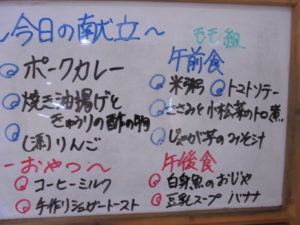 ～今日の献立～
ポークカレー
焼き油揚げと
きゅうりの酢の物
(済)りんご
－おやつへ
コーヒーミルク
手作りシュガートースト
もも組
午前食
米粥 トマトソテー
ささみと小松菜のトロ煮
じゃが芋のみそ汁
午後食
白身魚のおじや
豆乳スープ バナナ